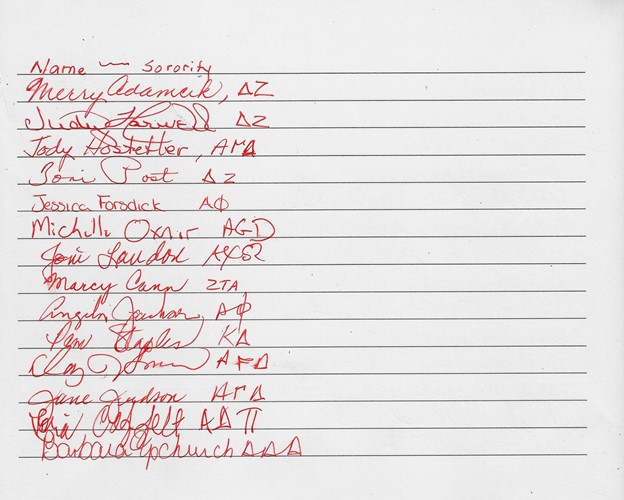 Name — Sorority
Merry Adamcik, ΔZ
Judy Harwell ΔZ
Jody Hostetter, ΑΓΔ
Toni Post ΔZ
Jessica Forsdick ΑΦ
Michelle AGD
Joni Landon ΑΧΩ
Marcy Cann ZTA
Angela Jackson, ΑΦ
Pam Staples ΚΔ
ΑΓΔ
Jane Judson ΑΓΔ
ΑΔΠ
Barbara Upchurch ΔΔΔ